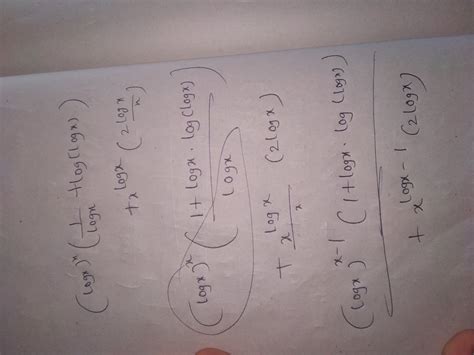 (logx)^x ( 1/logx + log(logx) )
+ x^logx ( 2 logx / x )
(logx)^x ( 1 + logx · log(logx) / logx )
+ x^logx / x (2 logx)
(logx)^x-1 ( 1 + logx · log(logx) )
+ x^logx-1 (2 logx)